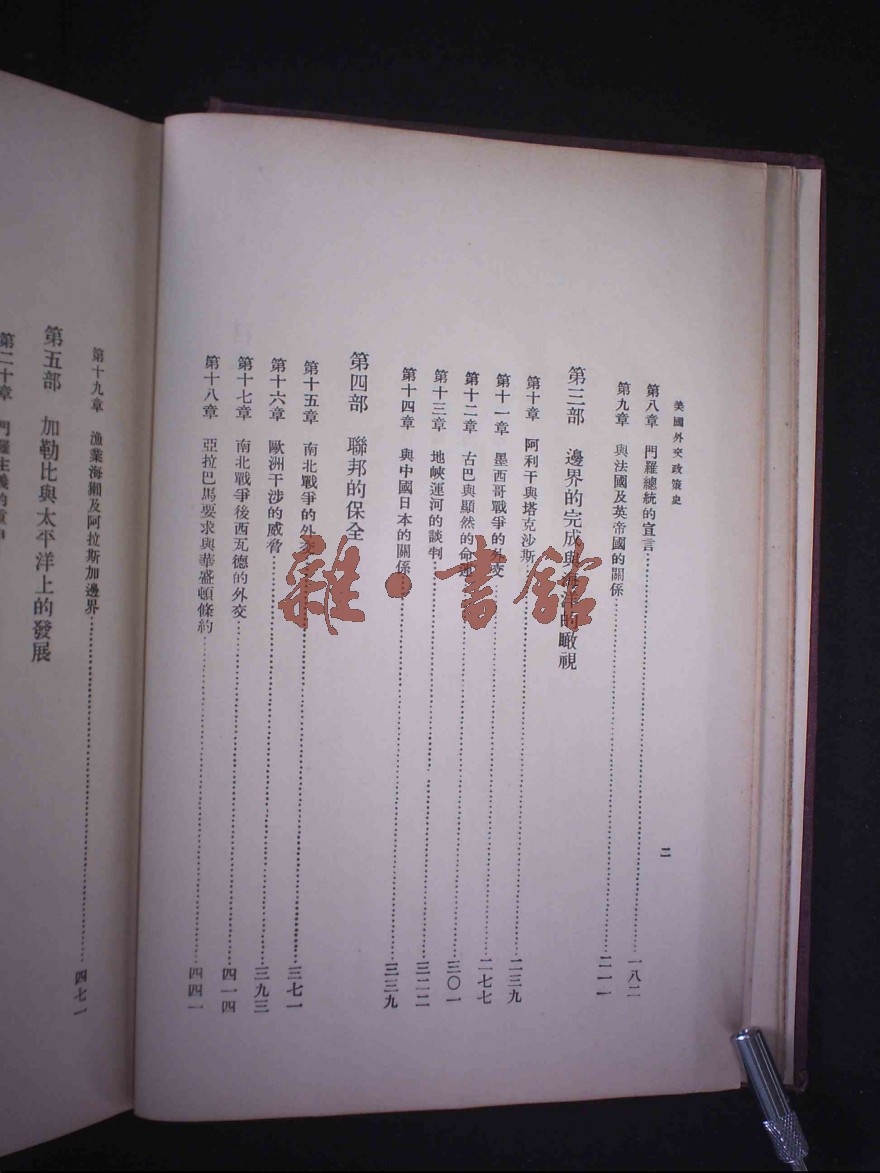 美國外交政策史
二
第八章 門羅總統的宣言 一八二
第九章 與法國及英帝國的關係 二一一
第三部 邊界的完成與海洋的瞰視
第十章 阿利干與塔克沙斯 二三九
第十一章 墨西哥戰爭的外交 二七七
第十二章 古巴與顯然的命運 三〇一
第十三章 地峽運河的談判 三二二
第十四章 與中國日本的關係 三三九
第四部 聯邦的保全
第十五章 南北戰爭的外交 三七一
第十六章 歐洲干涉的威脅 三九三
第十七章 南北戰爭後西瓦德的外交 四一四
第十八章 亞拉巴馬要求與華盛頓條約 四四一
第十九章 漁業海獺及阿拉斯加邊界 四七一
第五部 加勒比與太平洋上的發展
第二十章 門羅主義的
雜·書館